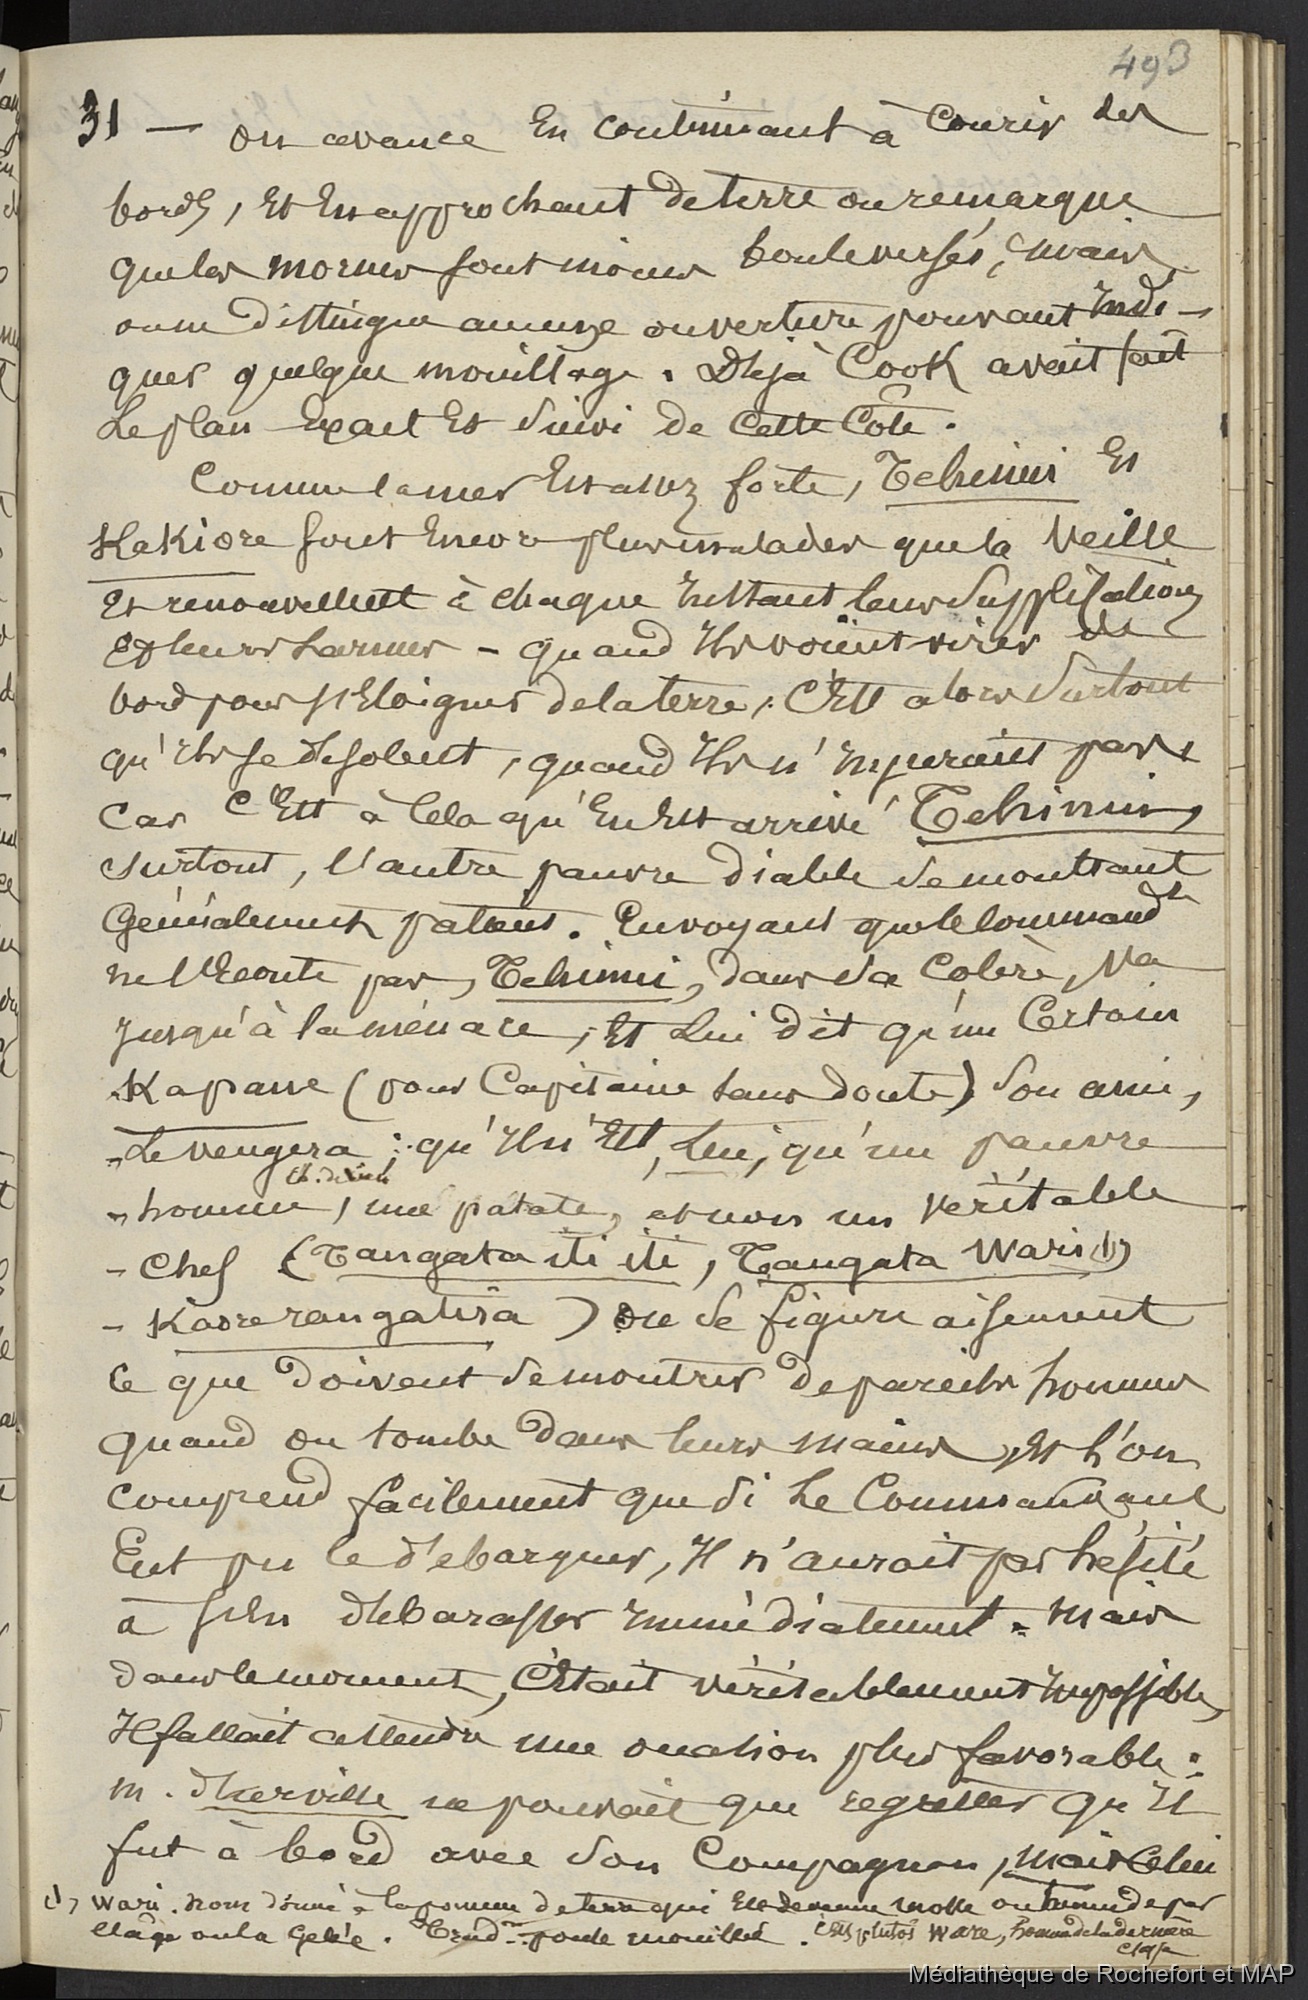 493
31 — on avance En continuant à Courir des
bords, Et En approchant de terre on remarque
que les mornes sont moins bouleversés, mais
on ne distingue aucune ouverture pouvant Indi-
quer quelque mouillage. Déjà Cook avait fait
Le plan Exact Et Suivi de Cette Côte.
Comme la mer Est assez forte, Tehimi Et
Kakiore sont Encore plus malades que la Veille
Et renouvellent à chaque Instant leurs Supplications
Et leurs Larmes - quand Ils voient virer de
bord pour s'Eloigner de la terre, C'Est alors Surtout
qu'Ils se désolent, quand Ils n'Injurient pas,
Car C'Est à Cela qu'En Est arrivé Tehimi,
Surtout, l'autre pauvre diable Se montrant
Généralement patient. En voyant que le Command.t
ne l'Ecoute pas, Tehimi, dans Sa Colère, Va
Jusqu'à la ménace, Et Lui dit qu'un Certain
Kapane (pour Capitaine sans doute) Son ami,
- Le vengera ; qu'Il n'Est, Lui, qu'un pauvre
- homme, une patate, et non un Véritable
- Chef (Tangata iti iti, Tangata Wari (1)
- Kaore rangatira ) on Se figure aisement
Ce que doivent Se montrer de pareils hommes
quand on tombe dans leurs mains, Et l'on
Comprend facilement que Si Le Commandant
Eut pu le débarquer, Il n'aurait pas hésité
à S'En débarasser Immédiatement - Mais
dans le moment, C'Etait véritablement Impossible,
Il fallait attendre une occasion plus favorable :
M. dherville ne pouvait que regretter qu'Il
fut à bord avec Son Compagnon, mais Celui
(1) Wari. nom donné à la pomme de terre qui Est devenue molle ou humide par
l'âge ou la Gelée. poule mouillée. C'est plutôt Ware, homme de la dernière
classe
Médiathèque de Rochefort et MAP